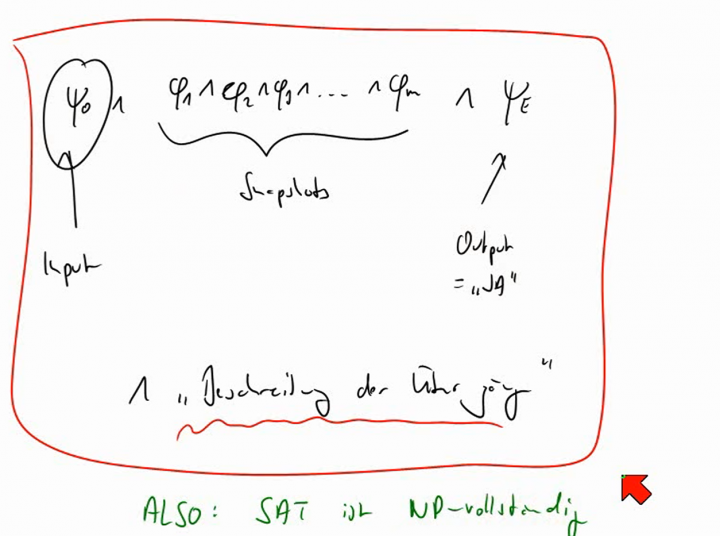 ψ₀ ∧ φ₁ ∧ φ₂ ∧ φ₃ ∧ ... ∧ φₘ ∧ ψ_E
Snapshots
Input
Output
= „JA“
∧ „Beschreibung der Übergänge“
ALSO: SAT ist NP-vollständig